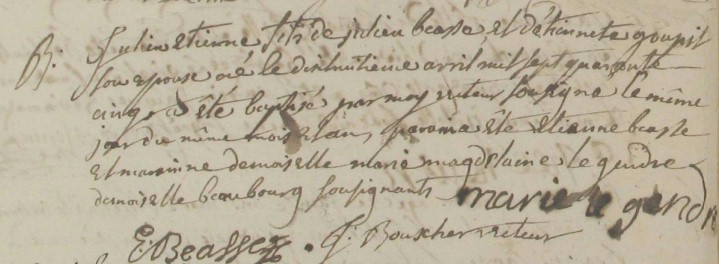 B: Julien Etienne fils de julien beasse Et détiennete goupil
son epouse né le dixhuitieme avril mil sept quarante
cinq a été baptisé par moy recteur soussigné le même
jour du même mois et an, parain a Eté Etienne beasse
Et maraine demoiselle marie magdelaine le gendre
demoiselle beaubourg soussignants marie le gendre
E: Beasse. J: Bouscher recteur